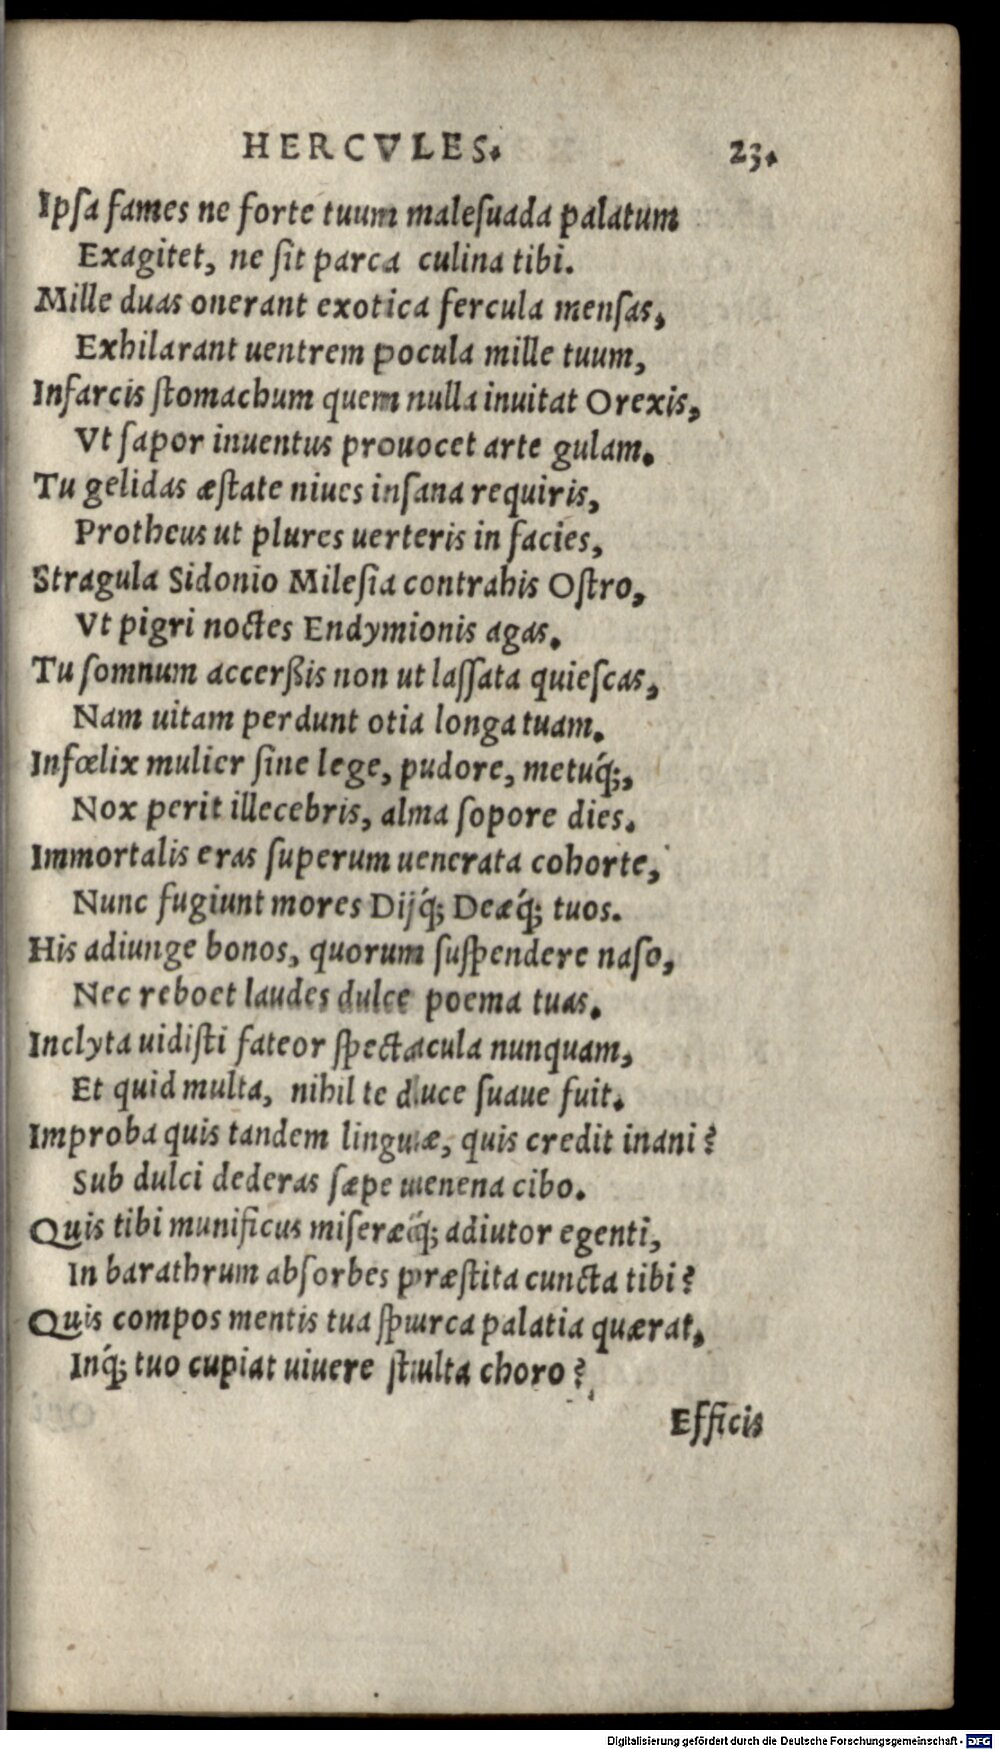 HERCVLES.
23.
Ipſa fames ne forte tuum maleſuada palatum
Exagitet, ne ſit parca culina tibi.
Mille duas onerant exotica fercula menſas,
Exhilarant uentrem pocula mille tuum,
Infarcis ſtomachum quem nulla inuitat Orexis,
Vt ſapor inuentus prouocet arte gulam.
Tu gelidas æſtate niues inſana requiris,
Protheus ut plures uerteris in facies,
Stragula Sidonio Mileſia contrahis Oſtro,
Vt pigri noctes Endymionis agas.
Tu ſomnum accerßis non ut laſſata quieſcas,
Nam uitam perdunt otia longa tuam.
Infœlix mulier ſine lege, pudore, metuq́;,
Nox perit illecebris, alma ſopore dies.
Immortalis eras ſuperum uenerata cohorte,
Nunc fugiunt mores Dijq́; Deæq́; tuos.
His adiunge bonos, quorum ſuſpendere naſo,
Nec reboet laudes dulce poema tuas.
Inclyta uidiſti fateor ſpectacula nunquam,
Et quid multa, nihil te duce ſuaue fuit.
Improba quis tandem linguæ, quis credit inani?
Sub dulci dederas ſæpe uenena cibo.
Quis tibi munificus miſeræq́; adiutor egenti,
In barathrum abſorbes præſtita cuncta tibi?
Quis compos mentis tua ſpurca palatia quærat,
Inq́; tuo cupiat uiuere ſtulta choro?
Efficis
Digitalisierung gefördert durch die Deutsche Forschungsgemeinschaft - DFG